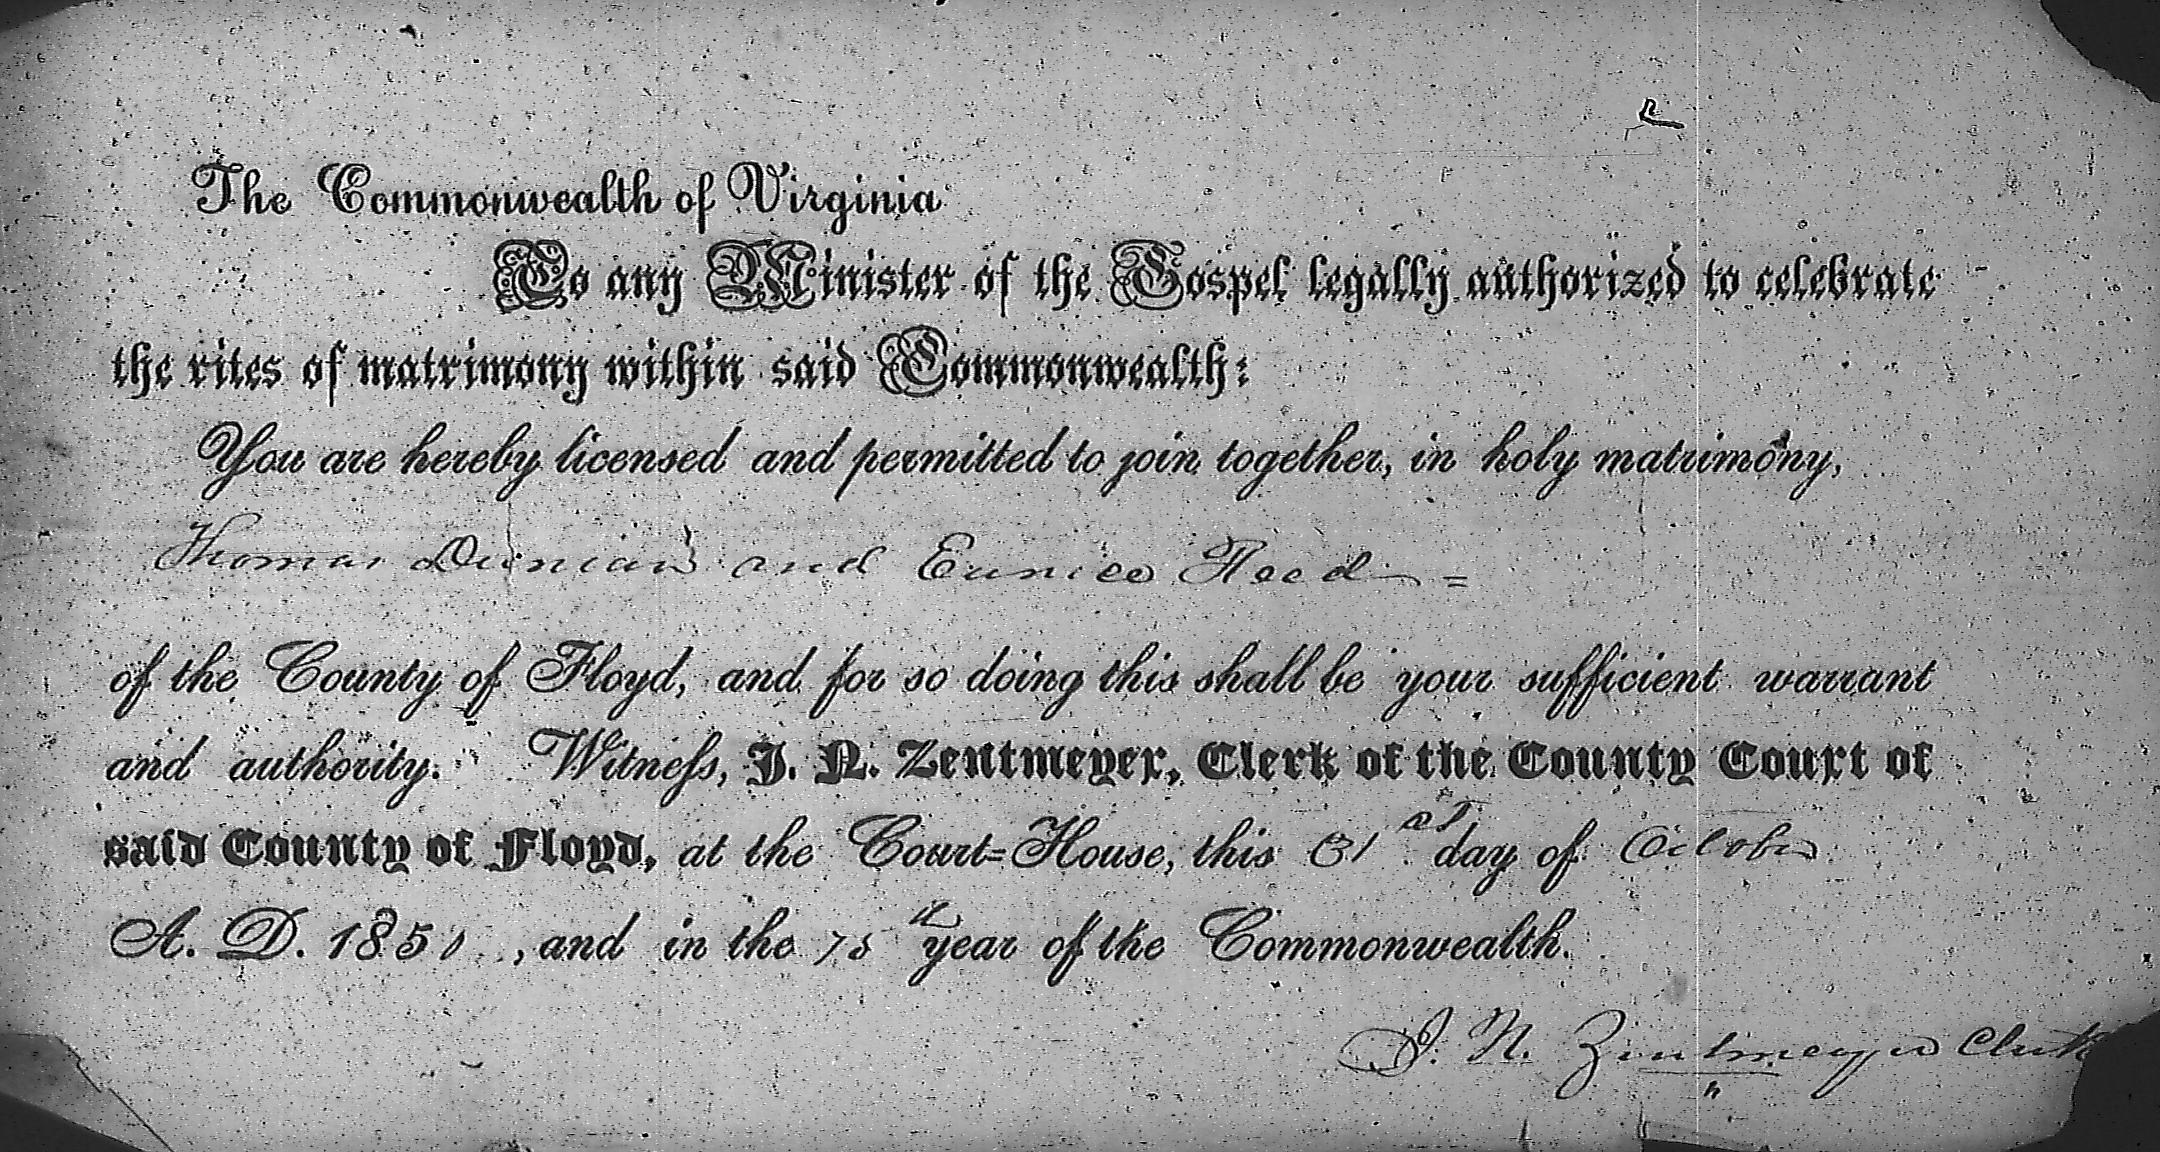 The Commonwealth of Virginia
To any Minister of the Gospel legally authorized to celebrate
the rites of matrimony within said Commonwealth:
You are hereby licensed and permitted to join together, in holy matrimony,
Thomas and Eunice Reed =
of the County of Floyd, and for so doing this shall be your sufficient warrant
and authority. Witneſs, J. N. Zentmeyer, Clerk of the County Court of
said County of Floyd, at the Court=House, this 31st day of October
A. D. 1851, and in the 75th year of the Commonwealth.
J. N. Zentmeyer Clerk